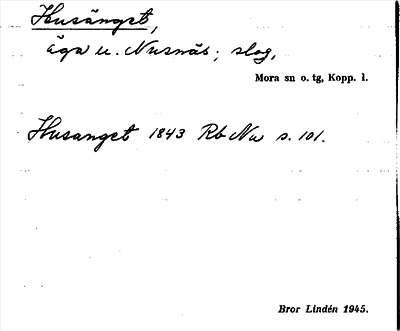 Husänget,
äga u. Nusnäs; slog,
Mora sn o. tg, Kopp. l.
Husanget 1843 Rb Nu s. 101.
Bror Lindén 1945.